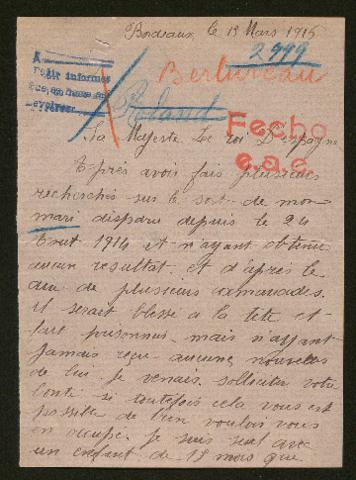 Bordeaux, le 19 Mars 1915
2999
A
Berbureau
Roland
Fecho
e.a.c.
Sa Majesté Le roi D'espagne
Après avoir fais plusieurs
recherches sur le sort de mon
mari disparu depuis le 24
Aout 1914 et n'ayant obtenu
aucun resultat. et d'après le
dire de plusieurs camarades.
il serait blessé a la tete et
fait prisonnier. mais n'ayant
jamais reçu aucune nouvelles
de lui je venais solliciter votre
bonté si toutefois cela vous est
possible de bien vouloir vous
en occupé. je suis seul avec
un enfant de 13 mois que